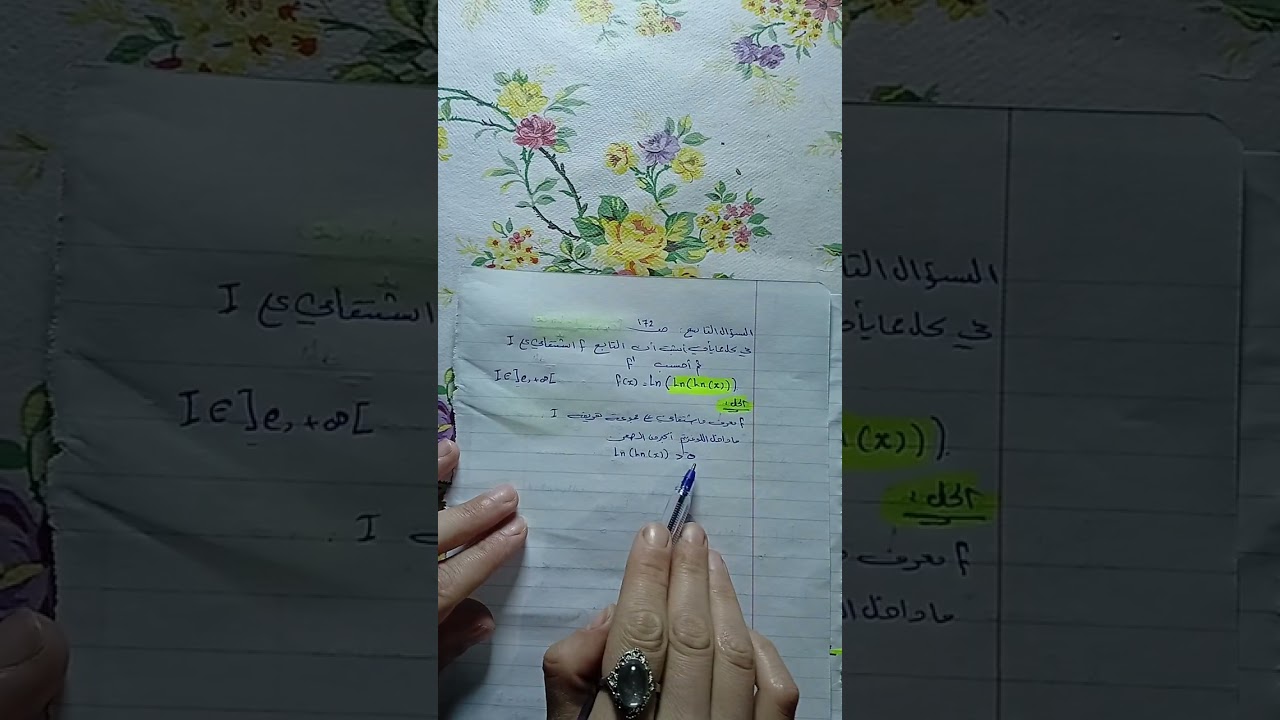 السؤال التاسع: ص 172
في كل مما يأتي أثبت أن التابع f اشتقاقي ع I
ثم احسب f'
f(x) = ln(ln(ln(x))) I∈]e,+∞[
الحل:
f معرف واشتقاقي ع مجموعة تعريف I
ما داخل اللوغاريتم أكبر من الصفر
ln(ln(x)) > 0